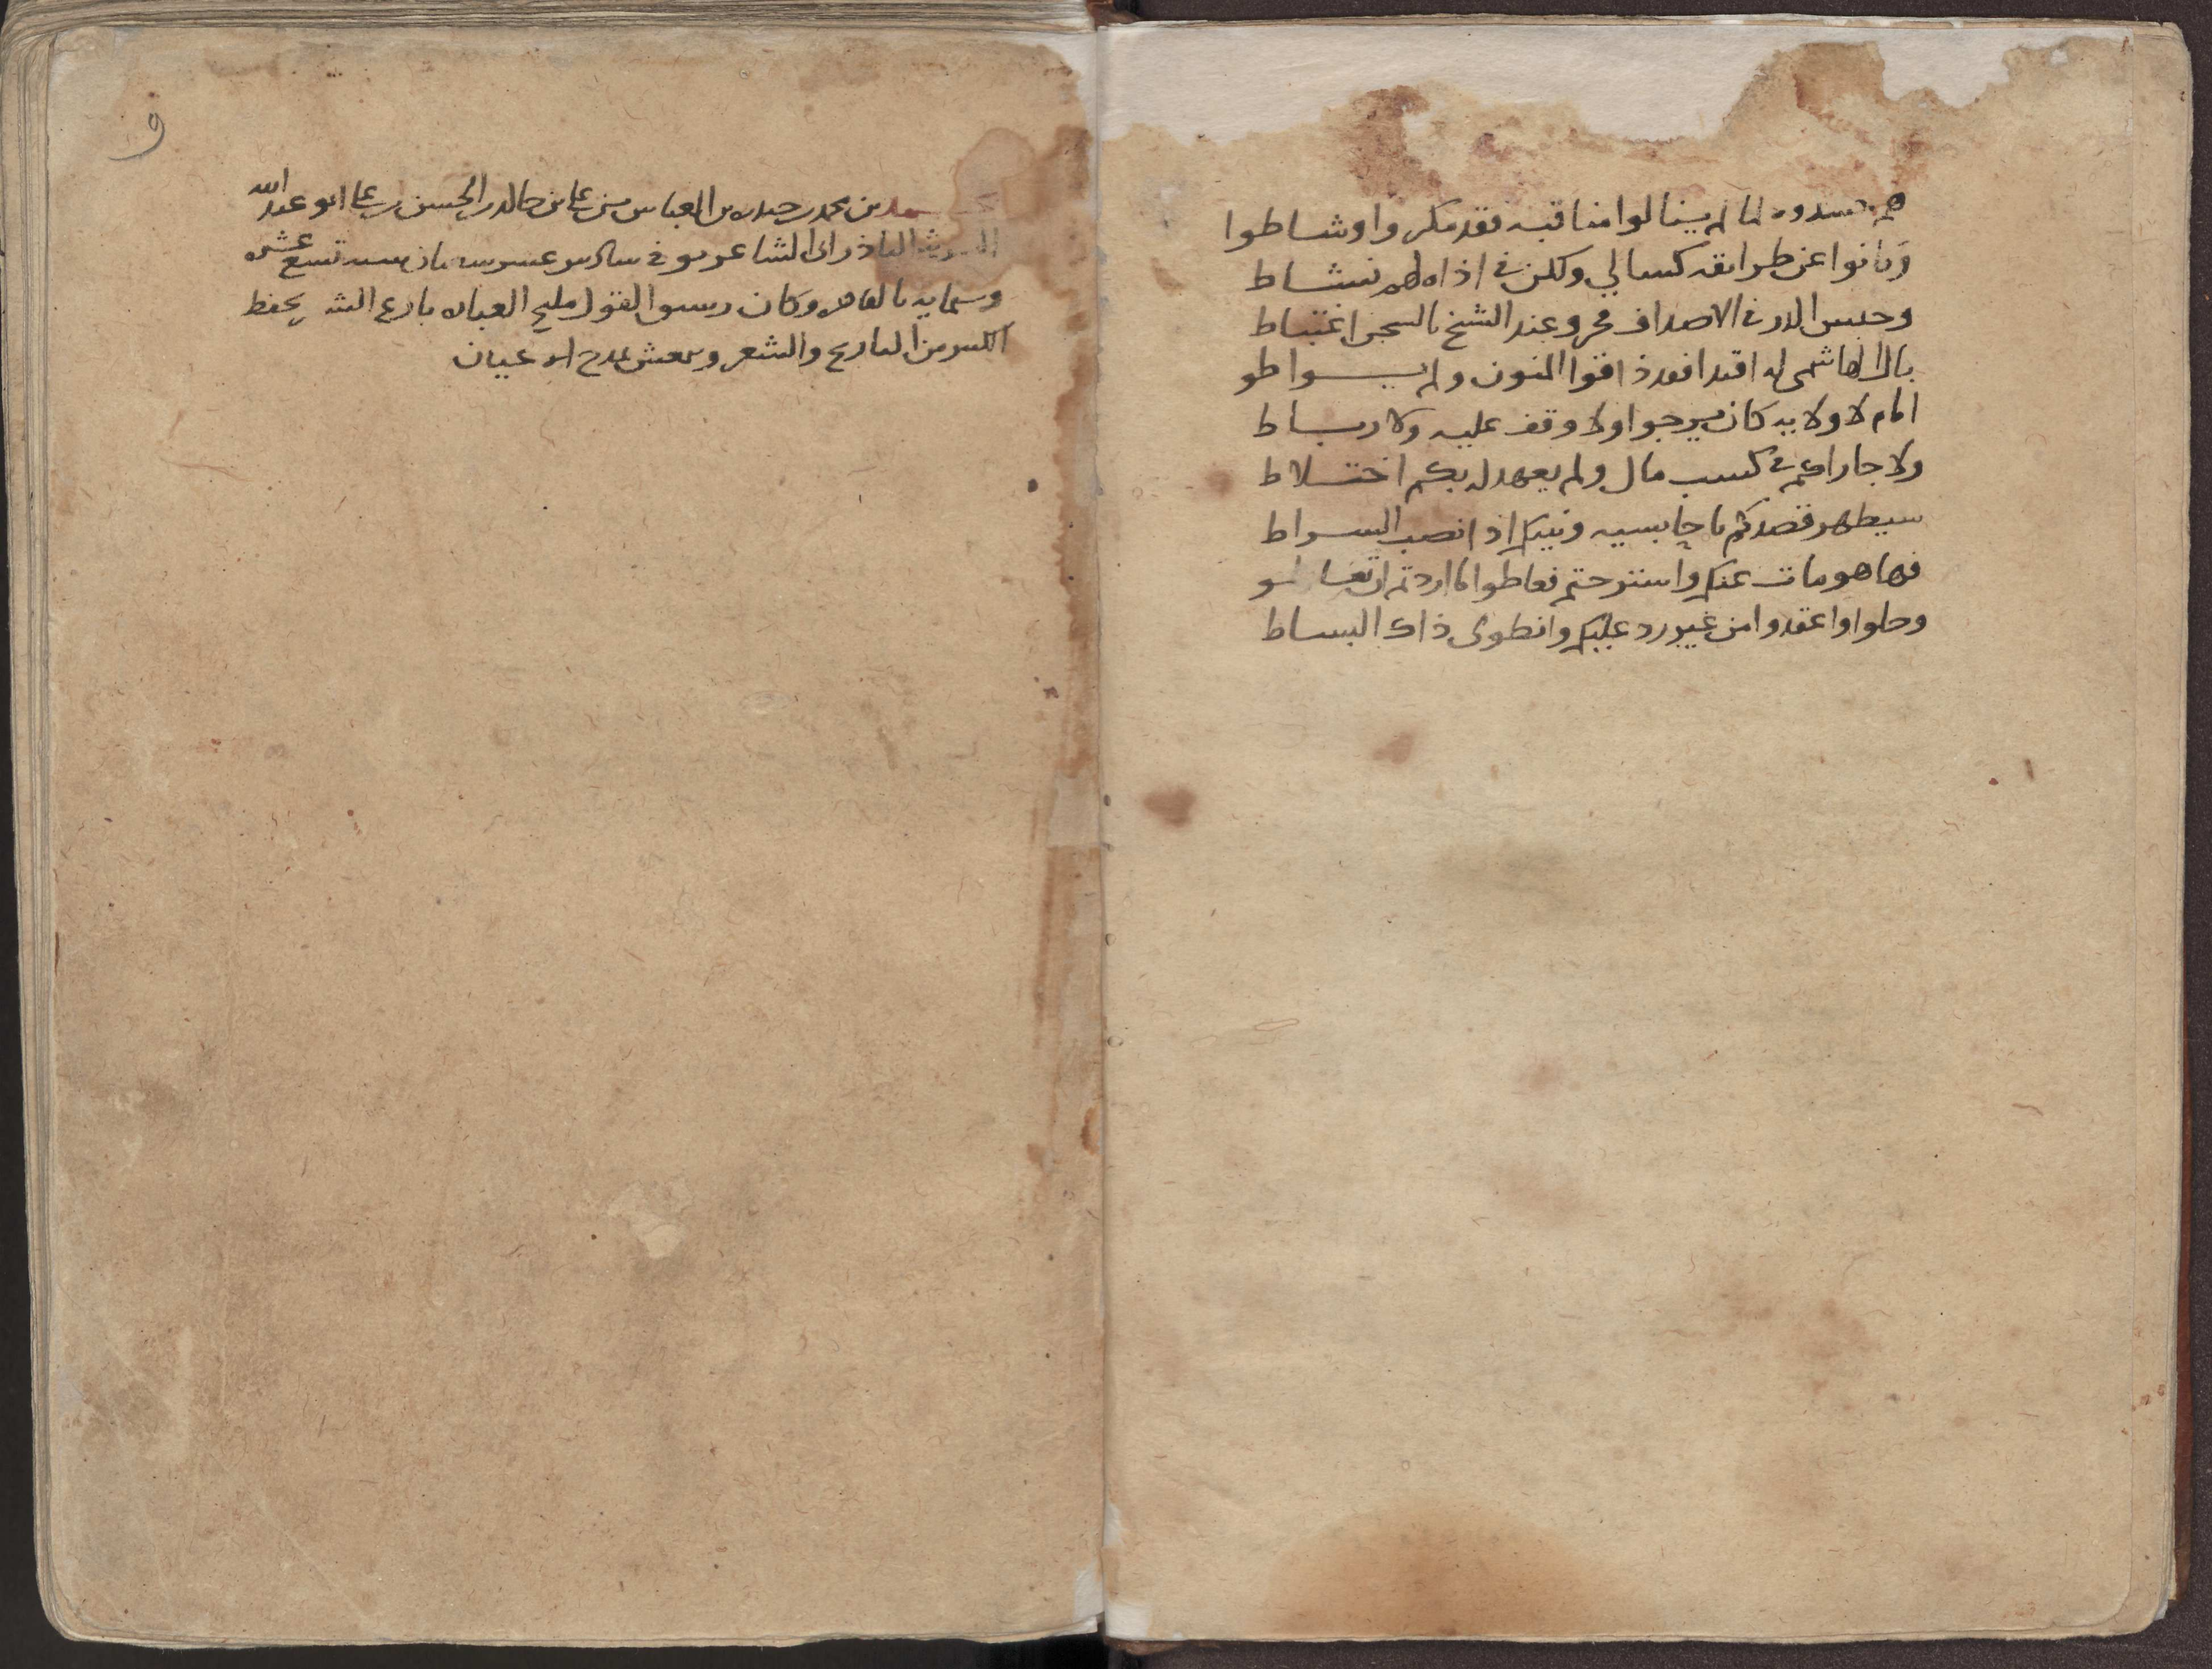 هم حسدوه لما لم ينالوا مناقبه فقد مكروا وشاطوا
وكانوا عن طرائقه كسالي ولكن في اذاه لهم نشاط
وحبس الدر في الاصداف فخر وعند الشيخ بالسجن اغتباط
بال الهاشمي له اقتدا فقد ذاقوا المنون ولم يواطو
امام لا ولايه كان يرجوا ولا وقف عليه ولا رباط
ولا جاراكم في كسب مال ولم يعهد له بكم اختلاط
سيظهر قصدكم يا حابسيه ونبيكم اذا نصب السراط
فها هو مات عنكم واسترحتم فعاطوا ما اردتم ان تعاطو
وحلوا واعقدوا من غير رد عليكم وانطوى ذاك البساط
و
بن محمد بن حيدره بن العباس بن بن خالد بن الحسن بن ابو عبد الله
الشاعر في سادس عشر تسع عشره
وستمايه بالقاهره وكان القول مليح العباره بارع يحفظ
الكثير من التاريخ والشعر ويعيش بمدح الاعيان